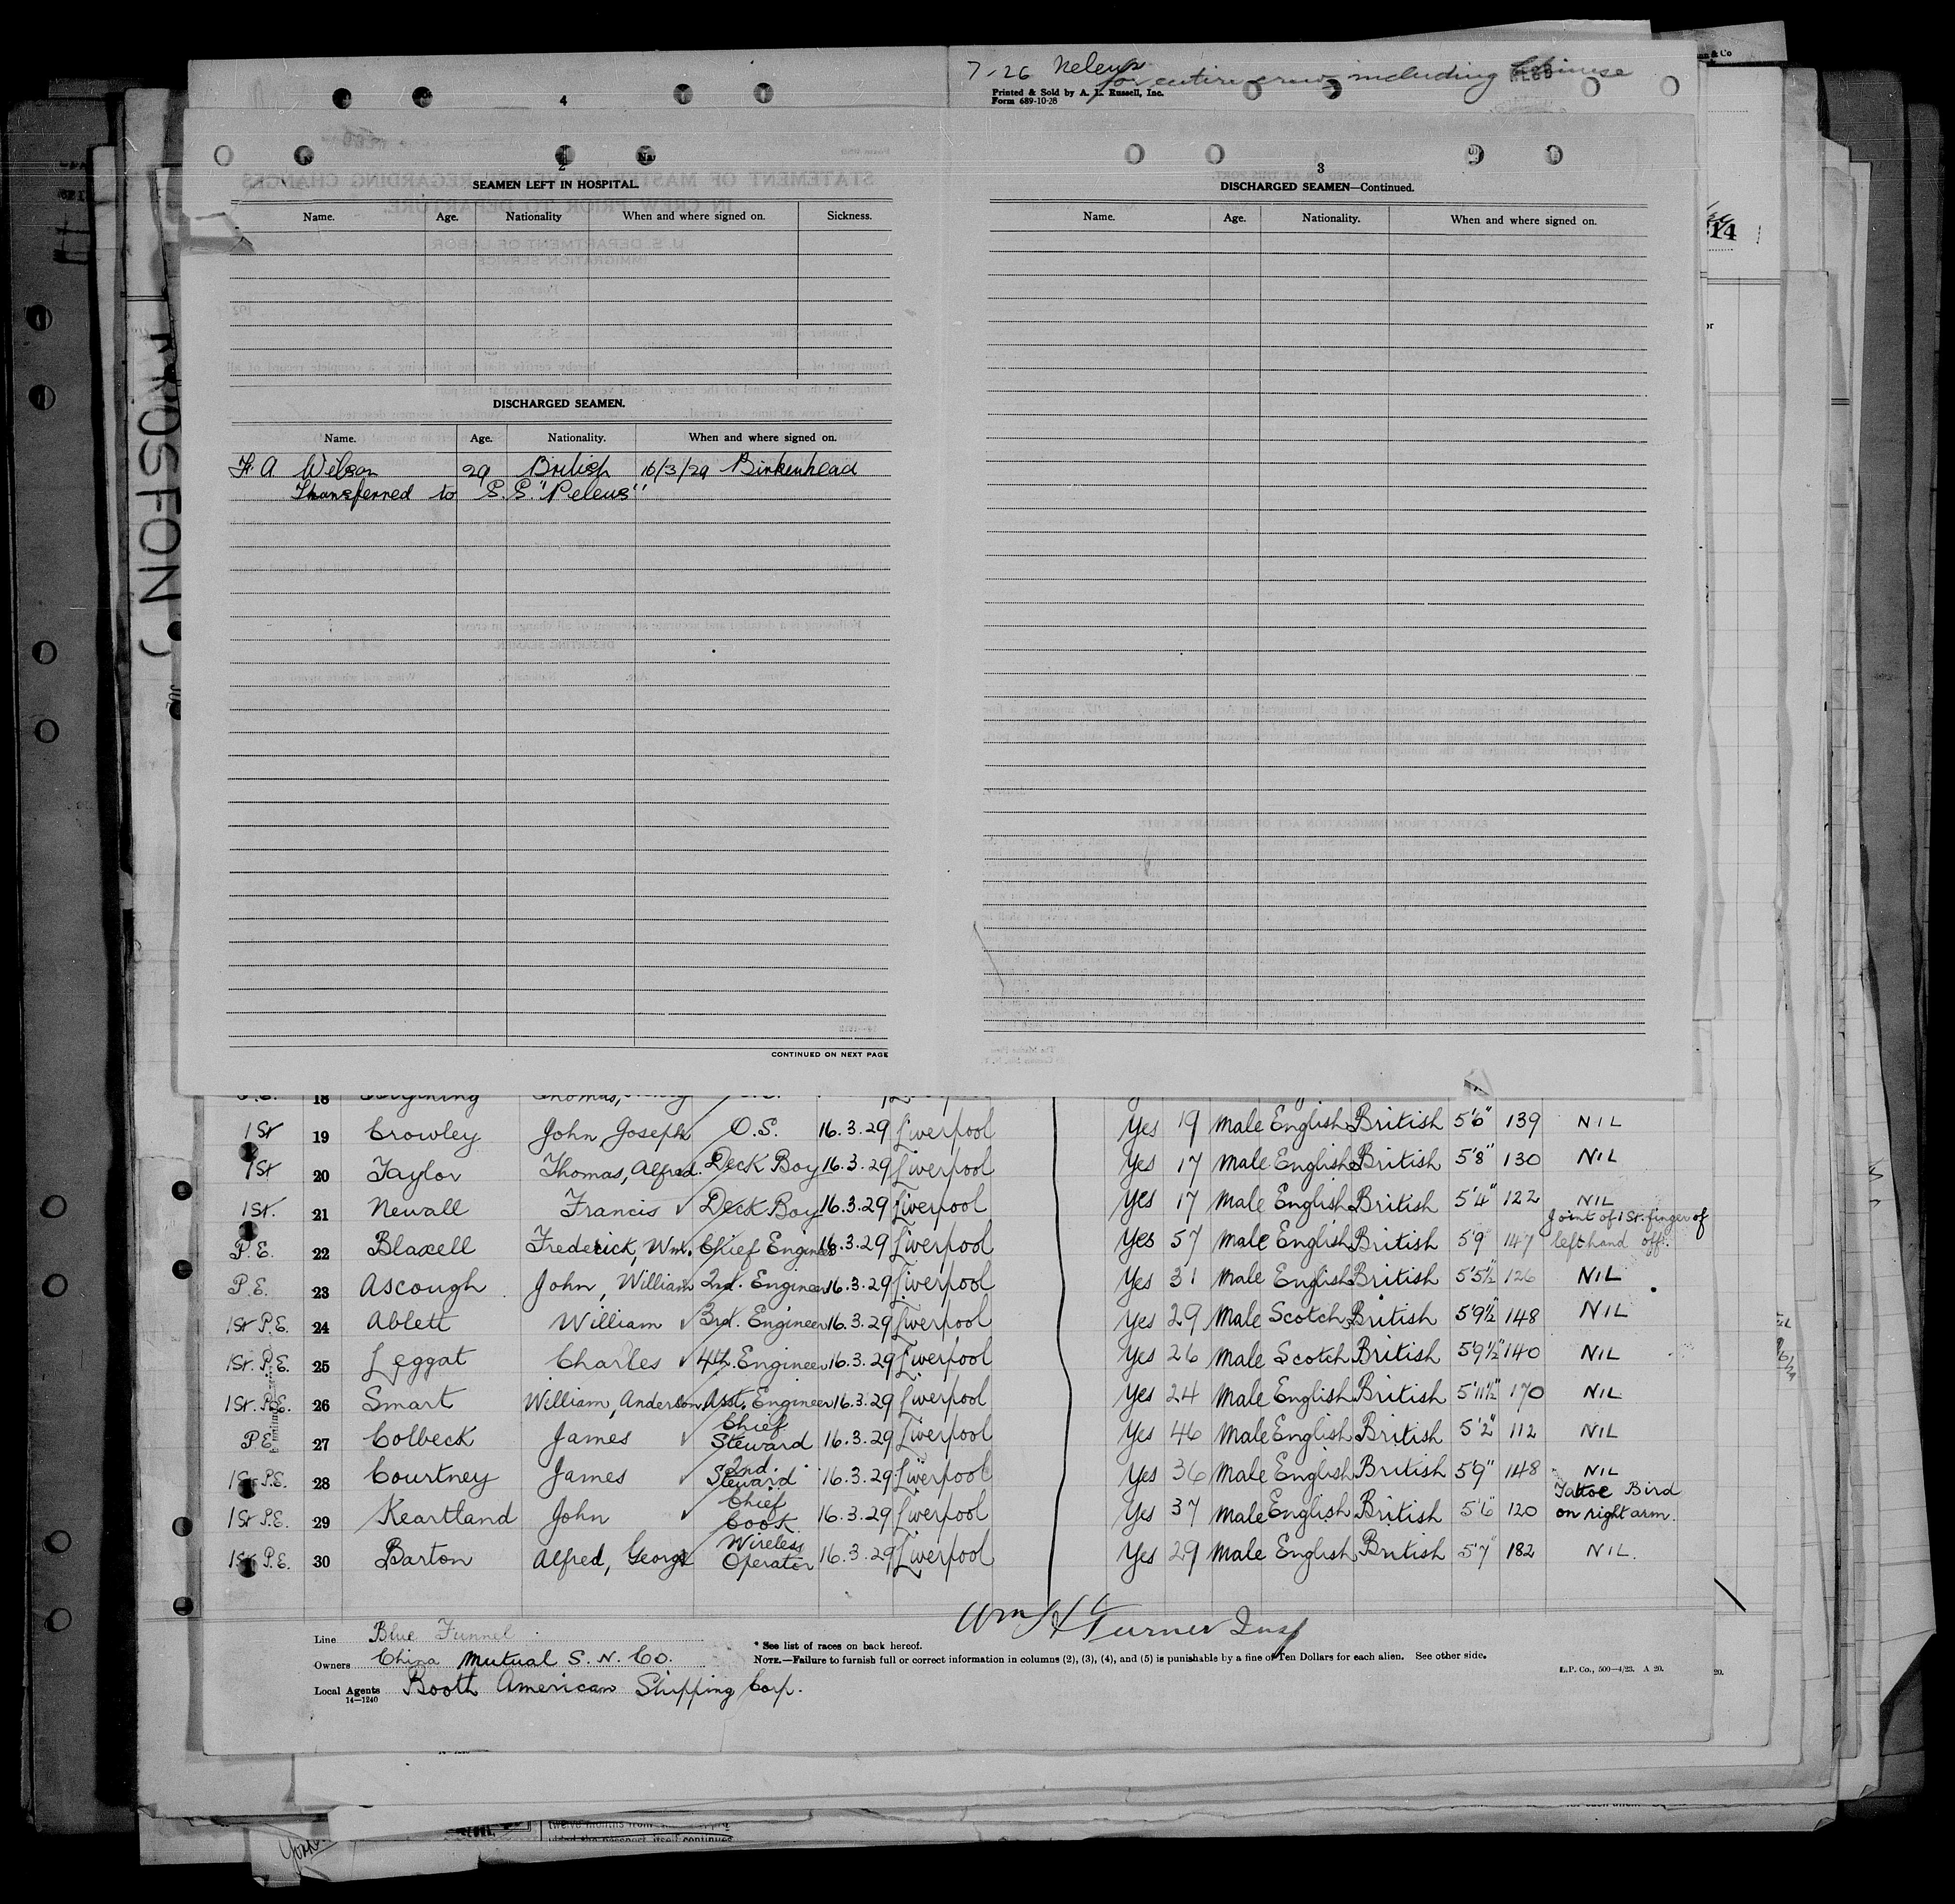 7-26 Neleus
for entire crew including Chinese
Printed & Sold by A. L. Russell, Inc.
Form 689-10-28
4
2
SEAMEN LEFT IN HOSPITAL.
Name. Age. Nationality When and where signed on. Sickness.
DISCHARGED SEAMEN.
Name. Age. Nationality. When and where signed on.
F. A Wilson 29 British 16/3/29 Birkenhead
Transferred to S.S. "Peleus"
CONTINUED ON NEXT PAGE
3
DISCHARGED SEAMEN—Continued.
Name. Age. Nationality. When and where signed on.
18
1st 19 Crowley John Joseph O.S. 16.3.29 Liverpool Yes 19 Male English British 5'6" 139 NIL
1st 20 Taylor Thomas, Alfred. Deck Boy 16.3.29 Liverpool Yes 17 Male English British 5'8" 130 NIL
1st. 21 Newall Francis Deck Boy 16.3.29 Liverpool Yes 17 Male English British 5'4" 122 NIL
P.E. 22 Blaxell Frederick, Wm. Chief Engineer 16.3.29 Liverpool Yes 57 Male English British 5'9 147 Joint of 1st. finger of left hand off.
P.E. 23 Ascough John, William 2nd. Engineer 16.3.29 Liverpool Yes 31 Male English British 5'5½ 126 NIL
1st P.E. 24 Ablett William 3rd. Engineer 16.3.29 Liverpool Yes 29 Male Scotch British 5'9½" 148 NIL
1st. P.E. 25 Leggat Charles 4th. Engineer 16.3.29 Liverpool Yes 26 Male Scotch British 5'9½" 140 NIL
1st. P.E. 26 Smart William, Anderson, Asst. Engineer 16.3.29 Liverpool Yes 24 Male English British 5'11½" 170 NIL
P.E. 27 Colbeck James Chief Steward 16.3.29 Liverpool Yes 46 Male English British 5'2" 112 NIL
1st P.E. 28 Courtney James 2nd. Steward 16.3.29 Liverpool Yes 36 Male English British 5'9" 148 NIL
1st P.E. 29 Keartland John Chief Cook 16.3.29 Liverpool Yes 37 Male English British 5'6" 120 Tattoe Bird on right arm.
1st P.E. 30 Barton Alfred, George Wireless Operator 16.3.29 Liverpool Yes 29 Male English British 5'7" 182 NIL.
Wm H Turner Insp
Line Blue Funnel
* See list of races on back hereof.
Owners China Mutual S. N. Co.
NOTE.—Failure to furnish full or correct information in columns (2), (3), (4), and (5) is punishable by a fine of Ten Dollars for each alien. See other side.
L.P. Co., 500—4/23. A 20.
Local Agents Booth American Shipping Corp.
14—1240